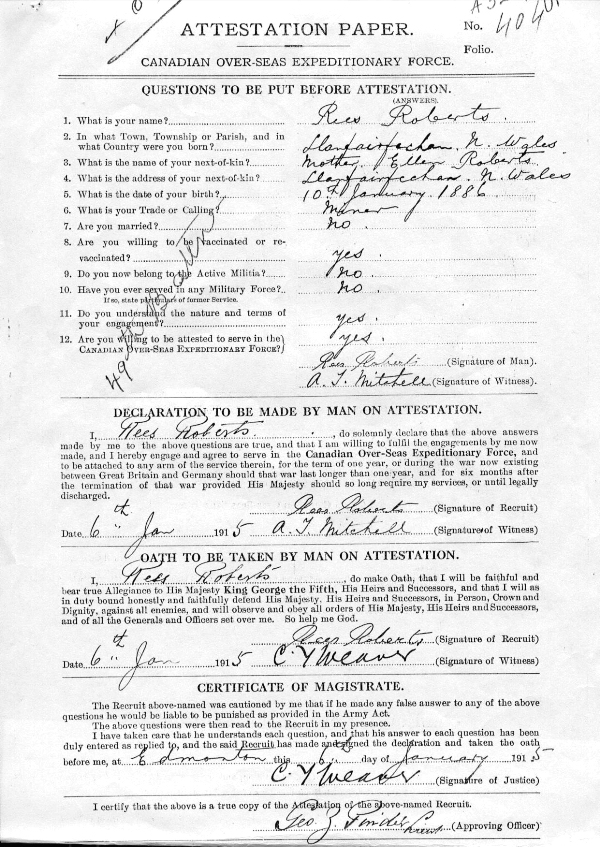 ATTESTATION PAPER.
No. 4040
Folio.
CANADIAN OVER-SEAS EXPEDITIONARY FORCE.
QUESTIONS TO BE PUT BEFORE ATTESTATION.
(ANSWERS).
1. What is your name? Rees Roberts.
2. In what Town, Township or Parish, and in
what Country were you born? Llanfairfechan. N. Wales
3. What is the name of your next-of-kin? Mother. Ellen Roberts
4. What is the address of your next-of-kin? Llanfairfechan. N. Wales
5. What is the date of your birth? 10th January. 1886
6. What is your Trade or Calling? Miner
7. Are you married? no.
8. Are you willing to be vaccinated or re-
vaccinated? yes.
9. Do you now belong to the Active Militia? no.
10. Have you ever served in any Military Force? no.
If so, state particulars of former Service.
11. Do you understand the nature and terms of
your engagement? yes.
12. Are you willing to be attested to serve in the
CANADIAN OVER-SEAS EXPEDITIONARY FORCE? yes.
49th Battalion
Rees Roberts (Signature of Man).
A. J. Mitchell (Signature of Witness).
DECLARATION TO BE MADE BY MAN ON ATTESTATION.
I, Rees Roberts, do solemnly declare that the above answers
made by me to the above questions are true, and that I am willing to fulfil the engagements by me now
made, and I hereby engage and agree to serve in the Canadian Over-Seas Expeditionary Force, and
to be attached to any arm of the service therein, for the term of one year, or during the war now existing
between Great Britain and Germany should that war last longer than one year, and for six months after
the termination of that war provided His Majesty should so long require my services, or until legally
discharged.
Rees Roberts (Signature of Recruit)
Date 6th Jan 1915 A. J. Mitchell (Signature of Witness)
OATH TO BE TAKEN BY MAN ON ATTESTATION.
I, Rees Roberts, do make Oath, that I will be faithful and
bear true Allegiance to His Majesty King George the Fifth, His Heirs and Successors, and that I will as
in duty bound honestly and faithfully defend His Majesty, His Heirs and Successors, in Person, Crown and
Dignity, against all enemies, and will observe and obey all orders of His Majesty, His Heirs and Successors,
and of all the Generals and Officers set over me. So help me God.
Rees Roberts (Signature of Recruit)
Date 6th Jan 1915 C. Y Weaver (Signature of Witness)
CERTIFICATE OF MAGISTRATE.
The Recruit above-named was cautioned by me that if he made any false answer to any of the above
questions he would be liable to be punished as provided in the Army Act.
The above questions were then read to the Recruit in my presence.
I have taken care that he understands each question, and that his answer to each question has been
duly entered as replied to, and the said Recruit has made and signed the declaration and taken the oath
before me, at Edmonton this 6th day of January 1915
C. Y Weaver (Signature of Justice)
I certify that the above is a true copy of the Attestation of the above-named Recruit.
Geo. Z. (Approving Officer)